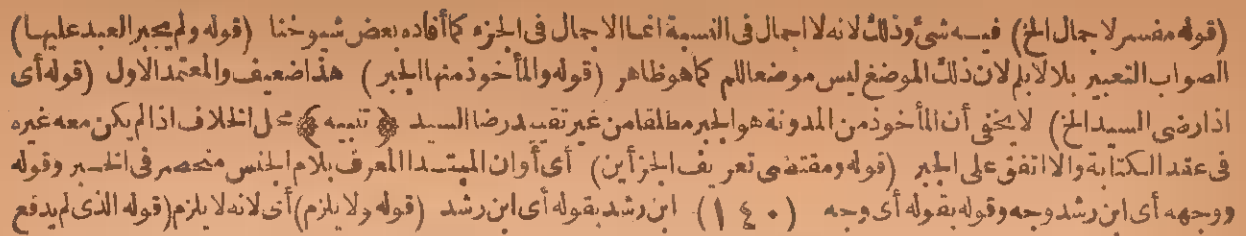 (قوله مفسر لاجمال الخ) فيه شئ وذلك لانه لا اجمال فى النسبة انما الاجمال فى الجزء كما أفاده بعض شيوخنا (قوله ولم يجبر العبد عليها)
الصواب التعبير بلا لا بلم لان ذلك الموضع ليس موضعا للم كما هو ظاهر (قوله والمأخوذ منها الجبر) هذا ضعيف والمعتمد الاول (قوله أى
اذا رضى السيد الخ) لا يخفى أن المأخوذ من المدونة هو الجبر مطلقا من غير تقييد برضا السيد ﴿تنبيه﴾ محل الخلاف اذا لم يكن معه غيره
فى عقد الكتابة والا اتفق على الجبر (قوله ومقتضى تعريف الجزأين) أى أو ان المبتدا المعرف بلام الجنس منحصر فى الخبر وقوله
ووجهه أى ابن رشد وجه وقوله بقوله أى وجه (١٤٠) ابن رشد بقوله أى ابن رشد (قوله ولا يلزم) أى لانه لا يلزم (قوله الذى لم يدفع